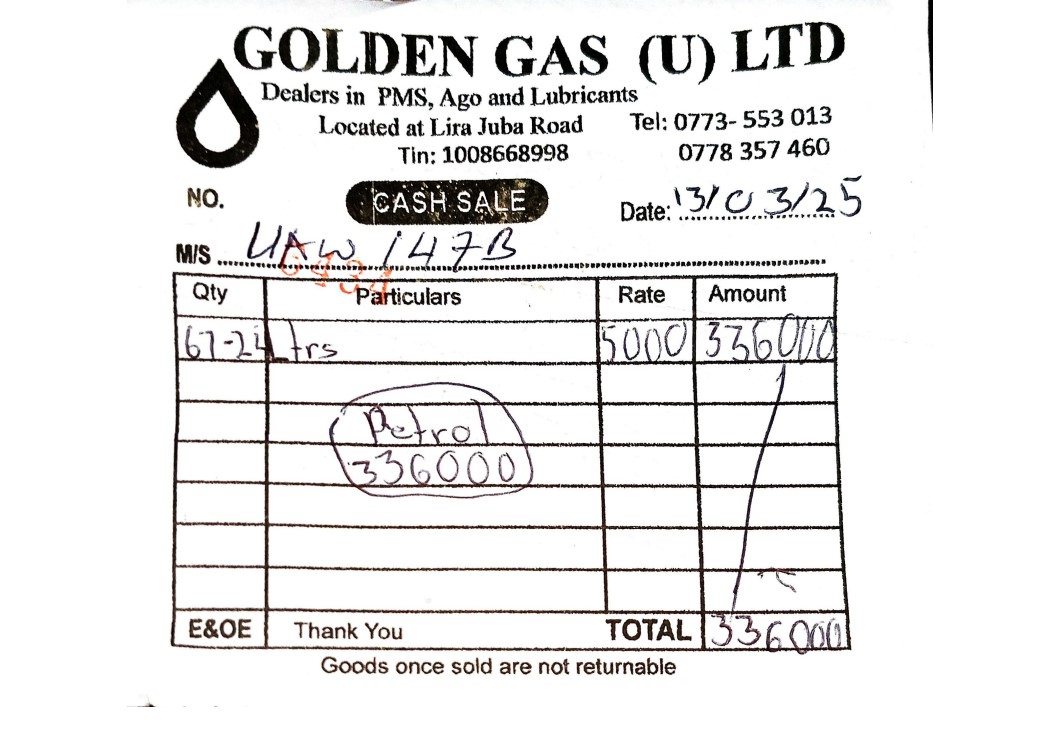 GOLDEN GAS (U) LTD
Dealers in PMS, Ago and Lubricants
Located at Lira Juba Road
Tel: 0773- 553 013
Tin: 1008668998
0778 357 460
NO.
CASH SALE
Date: 13/03/25
M/S UAW 147B
Qty Particulars Rate Amount
67-2 Ltrs 5000 336000
Petrol
336000
E&OE Thank You TOTAL 336000
Goods once sold are not returnable